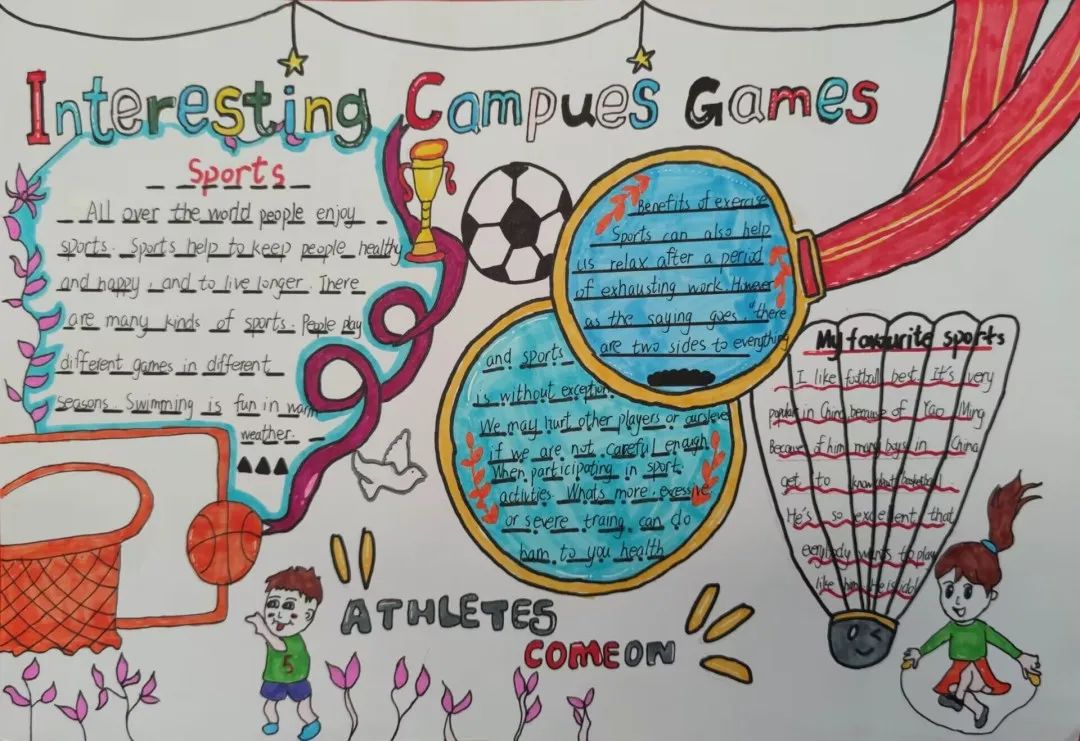 Interesting Campues Games
Sports
All over the world people enjoy
sports. Sports help to keep people healthy
and happy, and to live longer. There
are many kinds of sports. People play
different games in different
seasons. Swimming is fun in warm
weather.
Benefits of exercise
Sports can also help
us relax after a period
of exhausting work. However
as the saying goes, "there
are two sides to everything
and sports
is without exception.
We may hurt other players or ourselves
if we are not careful enough
When participating in sport.
activities. What's more, excessive
or severe traing can do
ham to you health
My favourite sports
I like futball best. It's very
popular in China because of Yao Ming
Because of him many boys in China
get to know about basketball.
He's so excellent that
everybody wants to play
like him. He is idol
5
ATHLETES
COME ON